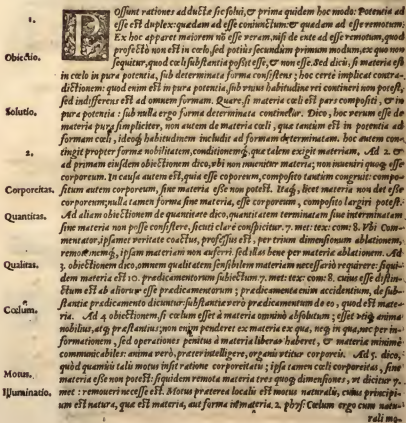 1.
POssunt rationes adductæ sic solui, & prima quidem hoc modo: Potentia ad
esse est duplex: quædam ad esse coniunctum: & quædam ad esse remotum;
Ex hoc apparet maiorem nō esse veram, nisi de ente ad esse remotum, quod
Obiectio.
profectò non est in cœlo, sed potiùs secundùm primum modum, ex quo non
sequitur, quod cœli substantia possit esse, & non esse. Sed dicis, si materia est
in cœlo in pura potentia, sub determinata forma consistens; hoc certè implicat contra-
dictionem: quod enim est in pura potentia, sub vnius habitudine rei contineri non potest,
sed indifferens est ad omnem formam. Quare, si materia cœli est pars compositi, & in
Solutio.
pura potentia: sub nulla ergo forma determinata continetur. Dico, hoc verum esse de
materia pura simpliciter, non autem de materia cœli, quæ tantum est in potentia ad
formam cœli, ideoq́; habitudinem includit ad formam determinatam. hoc autem con-
2.
tingit propter formæ nobilitatem, conditionemq́;, quæ talem exigit materiam. Ad 2. &
ad primam eiusdem obiectionem dico, vbi non inuenitur materia; non inueniri quoq; esse
corporeum. In causa autem est, quia esse coporeum, composito tantùm congruit: compo-
Corporeitas.
situm autem corporeum, sine materia esse non potest. Itaq́;, licet materia non det esse
corporeum; nulla tamen forma sine materia, esse corporeum, composito largiri potest.
Quantitas.
Ad aliam obiectionem de quantitate dico, quantitatem terminatam siue interminatam,
sine materia non posse consistere, sicuti clarè conspicitur. 7. met: tex: com: 8. Vbi Com-
mentator, ipsamet veritate coactus, professus est, per trium dimensionum ablationem,
remotionemq́;, ipsam materiam non auferri. sed illas bene per materia ablationem. Ad
Qualitas.
3. obiectionem dico, omnem qualitatem sensibilem materiam necessariò requirere: siqui-
dem materia est 10. prædicamentorum subiectum 7. met: tex: com: 8. cuius esse distin-
ctum est ab aliorum esse prædicamentorum; prædicamenta enim accidentium, de sub-
stantiæ prædicamento dicuntur: substantiæ verò prædicamentum de eo, quod est mate-
Cœlum.
ria. Ad 4 obiectionem, si cœlum esset à materia omninò absolutum; esset vtiq; anima
nobilius, atq; præstantius; non enim penderet ex materia ex qua, neq; in qua, nec per in-
formationem, sed operationes penitùs à materia liberas haberet, & materiæ minimè
communicabiles: anima verò, præter intelligere, organis vtitur corporeis. Ad 5. dico,
Motus.
quòd quamuis talis motus insit ratione corporeitatis; ipsa tamen cœli corporeitas, sine
materia esse non potest: siquidem remota materia tres quoq; dimensiones, vt dicitur 7.
Illuminatio.
met: remoueri necesse est. Motus præterea localis est motus naturalis, cuius princi-
pium est natura, quæ est materia, aut forma in materia. 2. phys: Cœlum ergo cum natu-
rali mo-